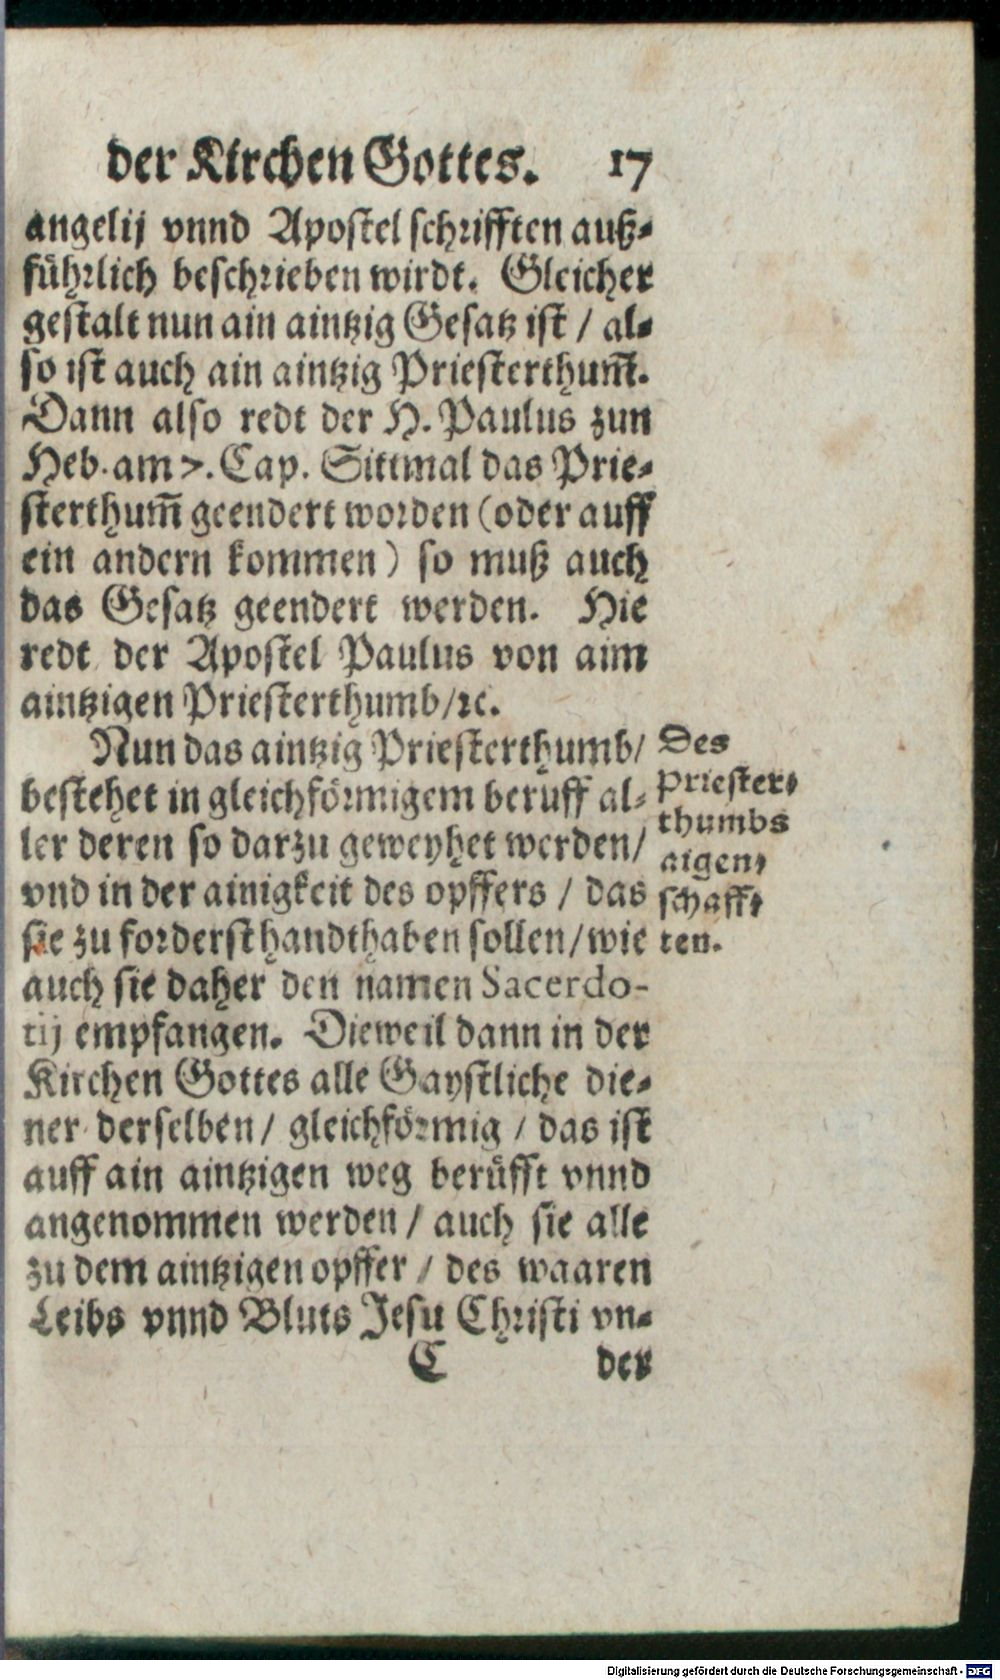 der Kirchen Gottes. 17
angelij vnnd Apostel schrifften auß-
führlich beschrieben wirdt. Gleicher
gestalt nun ain aintzig Gesatz ist / al-
so ist auch ain aintzig Priesterthum̃.
Dann also redt der H. Paulus zun
Heb. am 7. Cap. Sittmal das Prie-
sterthum̃ geendert worden (oder auff
ein andern kommen) so muß auch
das Gesatz geendert werden. Hie
redt der Apostel Paulus von aim
aintzigen Priesterthumb/ꝛc.
Nun das aintzig Priesterthumb/
bestehet in gleichförmigem beruff al-
ler deren so darzu geweyhet werden/
vnd in der ainigkeit des opffers / das
sie zu forderst handthaben sollen/wie
auch sie daher den namen Sacerdo-
tij empfangen. Dieweil dann in der
Kirchen Gottes alle Gaystliche die-
ner derselben/ gleichförmig / das ist
auff ain aintzigen weg berüfft vnnd
angenommen werden / auch sie alle
zu dem aintzigen opffer / des waaren
Leibs vnnd Bluts Jesu Christi vn-
C der
Des
Priester-
thumbs
aigen-
schaff-
ten.
Digitalisierung gefördert durch die Deutsche Forschungsgemeinschaft - DFG